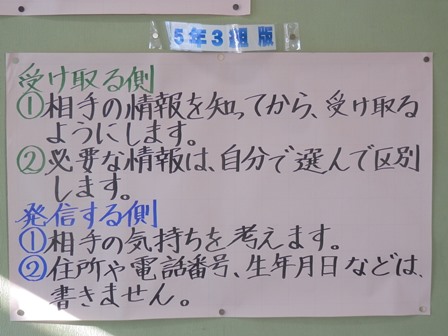 5年3組版
受け取る側
①相手の情報を知ってから、受け取る
ようにします。
②必要な情報は、自分で選んで区別
します。
発信する側
①相手の気持ちを考えます。
②住所や電話番号、生年月日などは、
書きません。